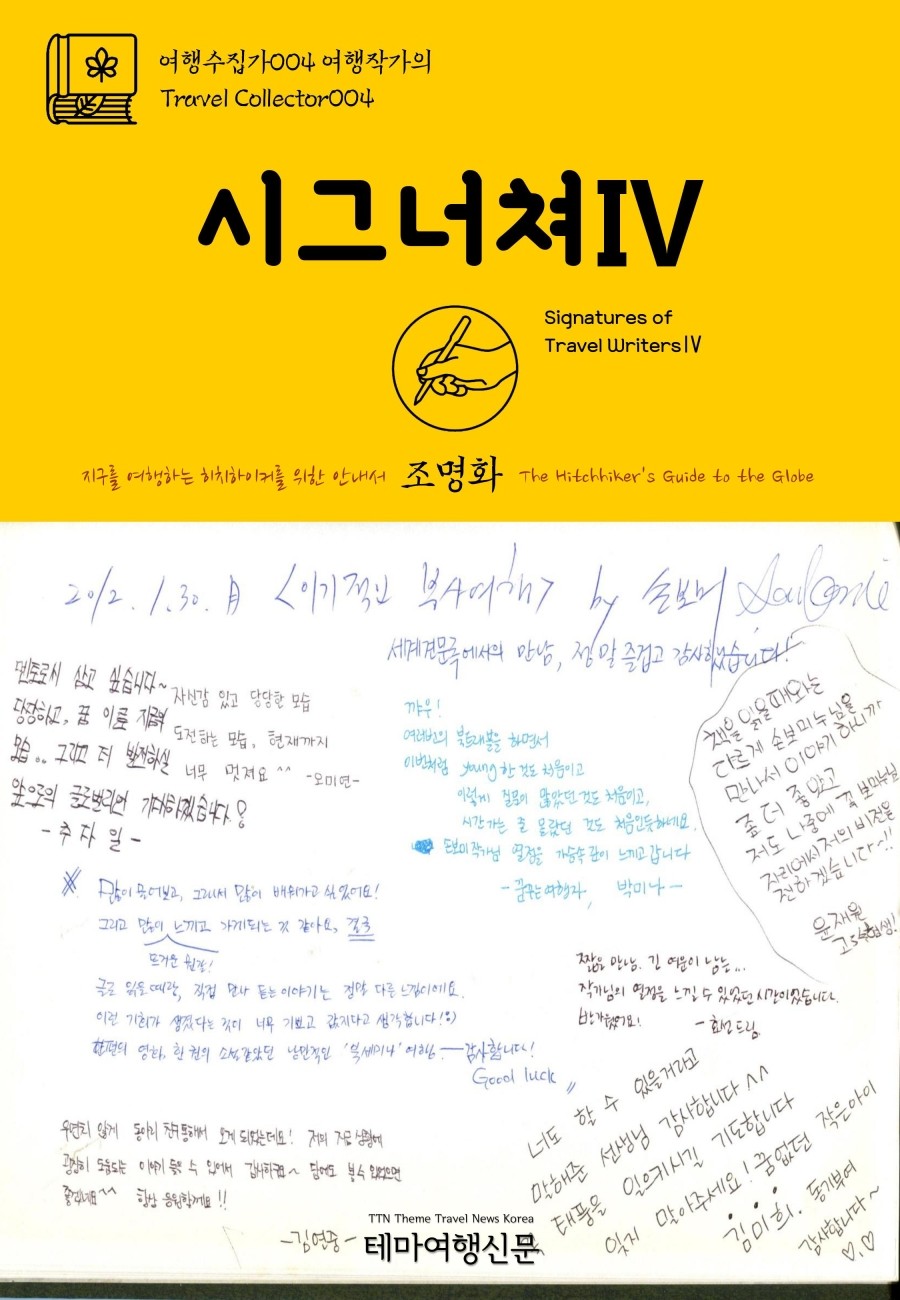 여행수집가004 여행작가의
Travel Collector004
시그너쳐IV
Signatures of
Travel Writers IV
지구를 여행하는 히치하이커를 위한 안내서 조명화 The Hitchhiker's Guide to the Globe
2012. 1. 30. 月 <이기적인 봉사여행> by 손보미
세계견문록에서의 만남, 정말 즐겁고 감사했습니다!
멘토로서 삼고 싶습니다~
당당하고, 꿈 이룬 지금의
모습.. 그리고 더 발전하실
앞으로의 글로벌리더 기대하겠습니다.
- 주 자 일 -
자신감 있고 당당한 모습
도전하는 모습, 현재까지
너무 멋져요 ^^ -오미연-
꺄우!
여러번의 북트래블을 하면서
이번처럼 young한 것도 처음이고
이렇게 질문이 많았던 것도 처음이고,
시간가는 줄 몰랐던 것도 처음인듯하네요.
손보미작가님 열정을 가슴속 깊이 느끼고 갑니다
- 꿈꾸는여행자, 박미나 -
책을 읽을때와는
다르게 손보미누님을
만나서 이야기 하니까
좀 더 좋았고
저도 나중에 꼭 보미누님
자리에서 저의 비전을
전하겠습니다~!!
윤재원
많이 물어보고, 그래서 많이 배워가고 싶었어요!
그리고 많이 느끼고 가게되는 것 같아요, 결국
뜨거운 원감!
글로 읽을때랑, 직접 만나 듣는이야기는 정말 다른 느낌이에요.
이런 기회가 생겼다는 것이 너무 기쁘고 값지다고 생각합니다!
한편의 영화, 한 권의 소설같았던 낭만적인 '북세미나' 여행. 감사합니다!
Good luck
짧은 만남. 긴 여운이 남는...
작가님의 열정을 느낄 수 있었던 시간이었습니다.
반가웠어요! - 효선드림.
우연치 않게 동아리 친구통해서 오게 되었는데요! 저의 지금 상황에
굉장히 도움되는 이야기 들을 수 있어서 감사하구요~ 담에도 볼 수 있었으면
좋겠네요^^ 항상 응원할게요!!
-김연중-
너도 할 수 있을거라고
말해준 선생님 감사합니다 ^^
태풍을 일으키시길 기도합니다
잊지 말아주세요! 꿈 없던 작은아이
김미희. 동기부여
감사합니다~
TTN Theme Travel News Korea
테마여행신문